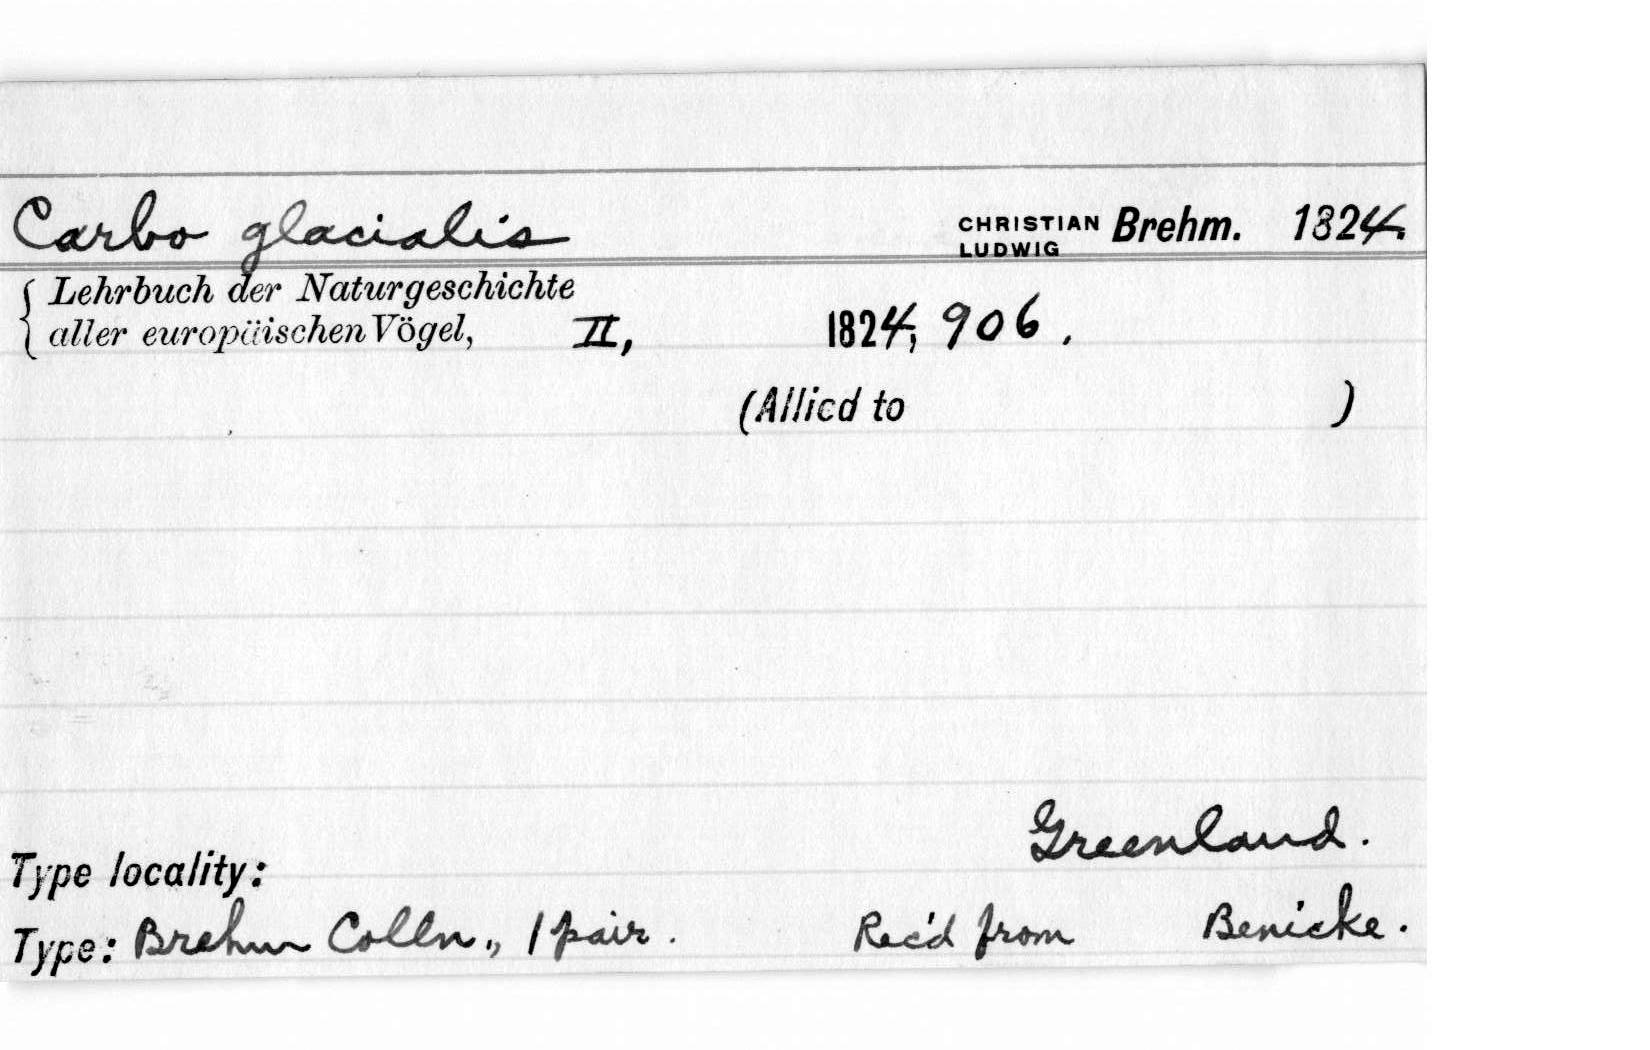 Carbo glacialis CHRISTIAN LUDWIG Brehm. 1824.
Lehrbuch der Naturgeschichte
aller europäischen Vögel, II, 1824, 906.
(Allied to )
Greenland.
Type locality:
Type: Brehm Colln., 1 pair. Rec'd from Benicke.